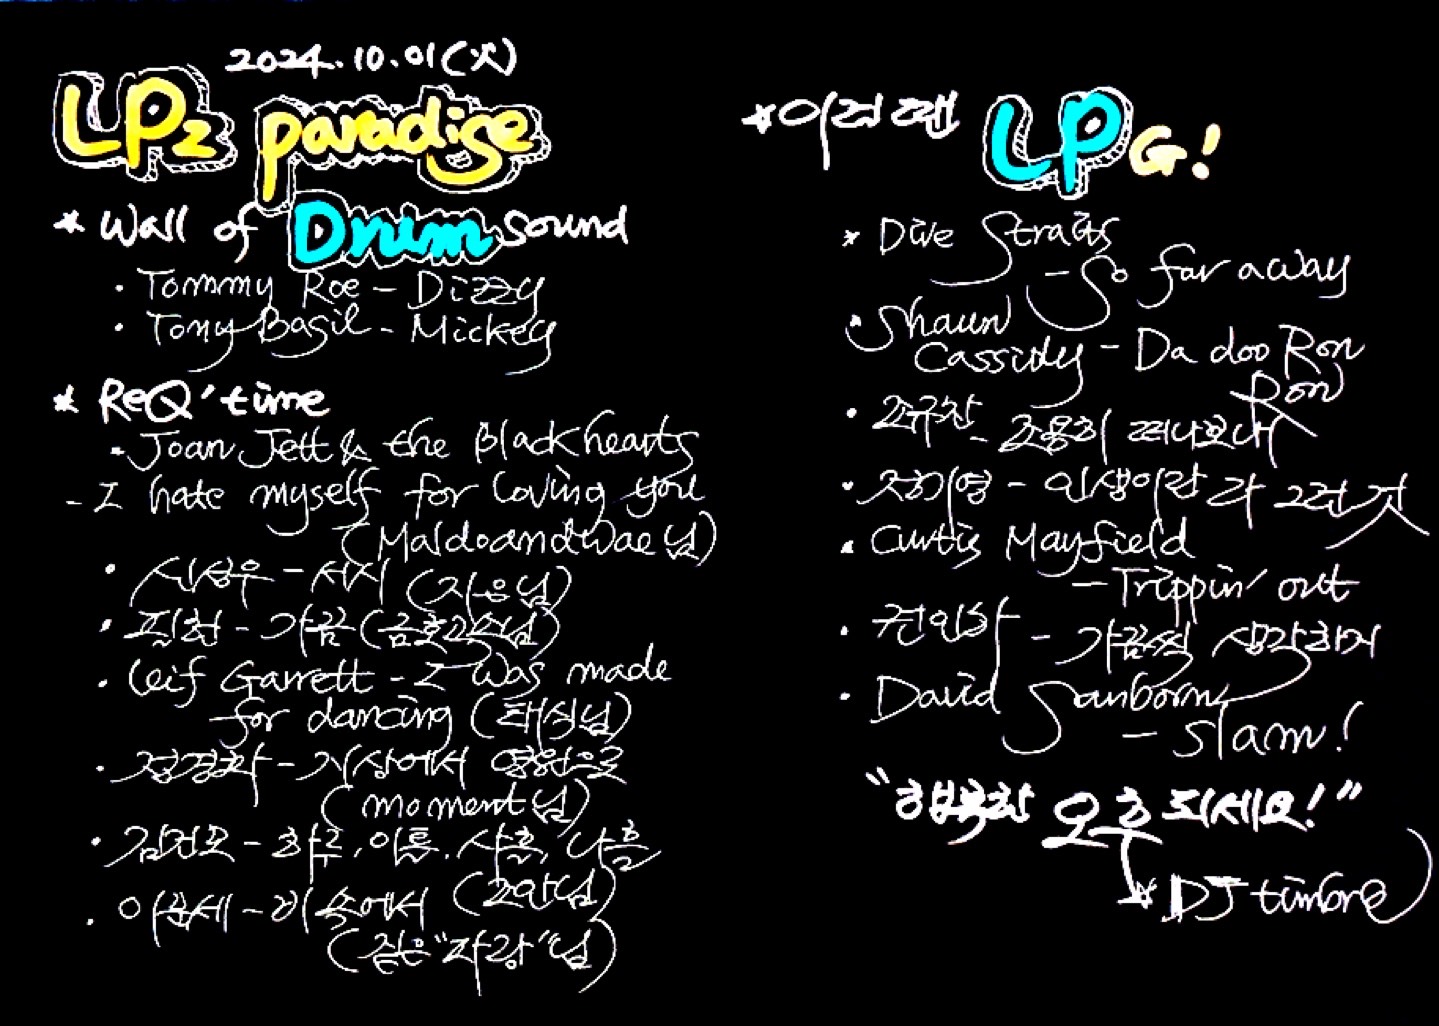 2024.10.01(火)
LPz paradise
* Wall of Drum sound
· Tommy Roe - Dizzy
· Tony Basil - Mickey
* ReQ'time
· Joan Jett & the Blackhearts
- I hate myself for loving you
(Maldoandwae님)
· 신성우 - 서시 (지은님)
· 필청 - 가끔 (금호고의님)
· Leif Garrett - I was made
for dancing (태식님)
· 정경화 - 지상에서 영원으로
(moment님)
· 김건모 - 하루, 이틀, 사흘, 나흘
(고야님)
· 이문세 - 빗속에서
(짙은"파랑"님)
*이럴땐 LPG!
* Dire Straits
- So far away
· Shaun
Cassidy - Da doo Ron
Ron
· 조규찬 - 조용히 떠나보내
· 서지영 - 인생이란 다 그런 것
· Curtis Mayfield
- Trippin' out
· 전인화 - 가끔씩 생각하지
· David Sanborn
- Slam!
"행복한 오후 되세요!"
* DJ timbre